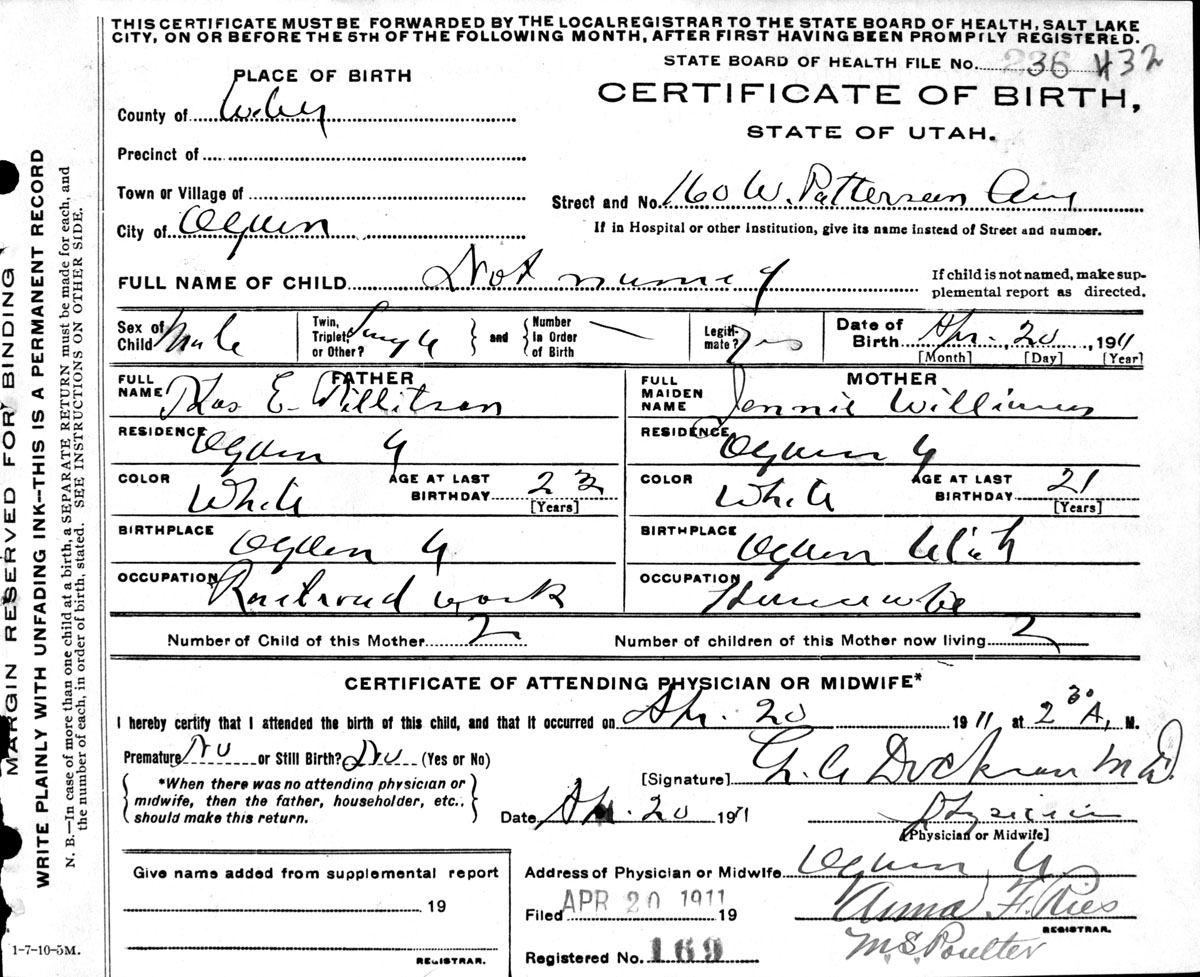 THIS CERTIFICATE MUST BE FORWARDED BY THE LOCALREGISTRAR TO THE STATE BOARD OF HEALTH, SALT LAKE
CITY, ON OR BEFORE THE 5TH OF THE FOLLOWING MONTH, AFTER FIRST HAVING BEEN PROMPTLY REGISTERED.
STATE BOARD OF HEALTH FILE No. 236 432
PLACE OF BIRTH
CERTIFICATE OF BIRTH,
STATE OF UTAH.
County of Weber
Precinct of
Town or Village of
Street and No. 160 W. Patterson Ave
City of Ogden
If in Hospital or other Institution, give its name instead of Street and number.
FULL NAME OF CHILD Not named
If child is not named, make sup-
plemental report as directed.
Sex of Child Male
Twin, Triplet, or Other? Single
and
Number In Order of Birth —
Legiti-mate? Yes
Date of Birth Apr. 20, 1911
[Month] [Day] [Year]
FATHER
FULL NAME Thos E. Tillitson
RESIDENCE Ogden U
COLOR White
AGE AT LAST BIRTHDAY 23
[Years]
BIRTHPLACE Ogden U
OCCUPATION Railroad work
MOTHER
FULL MAIDEN NAME Jennie Williams
RESIDENCE Ogden U
COLOR White
AGE AT LAST BIRTHDAY 21
[Years]
BIRTHPLACE Ogden Utah
OCCUPATION Housewife
Number of Child of this Mother 2
Number of children of this Mother now living 2
CERTIFICATE OF ATTENDING PHYSICIAN OR MIDWIFE*
I hereby certify that I attended the birth of this child, and that it occurred on Apr. 20 1911 at 2 30 A. M.
Premature No or Still Birth? No (Yes or No)
*When there was no attending physician or
midwife, then the father, householder, etc.,
should make this return.
[Signature] M D
Date Apr. 20 1911
Physician
[Physician or Midwife]
Give name added from supplemental report
19
REGISTRAR.
Address of Physician or Midwife Ogden U
Filed APR 20 1911 19
Anna F. Ries
REGISTRAR.
Registered No. 169
M.S. Poulter
1-7-10-5M.
MARGIN RESERVED FOR BINDING
WRITE PLAINLY WITH UNFADING INK--THIS IS A PERMANENT RECORD
N. B.—In case of more than one child at a birth, a SEPARATE RETURN must be made for each, and
the number of each, in order of birth, stated. SEE INSTRUCTIONS ON OTHER SIDE.